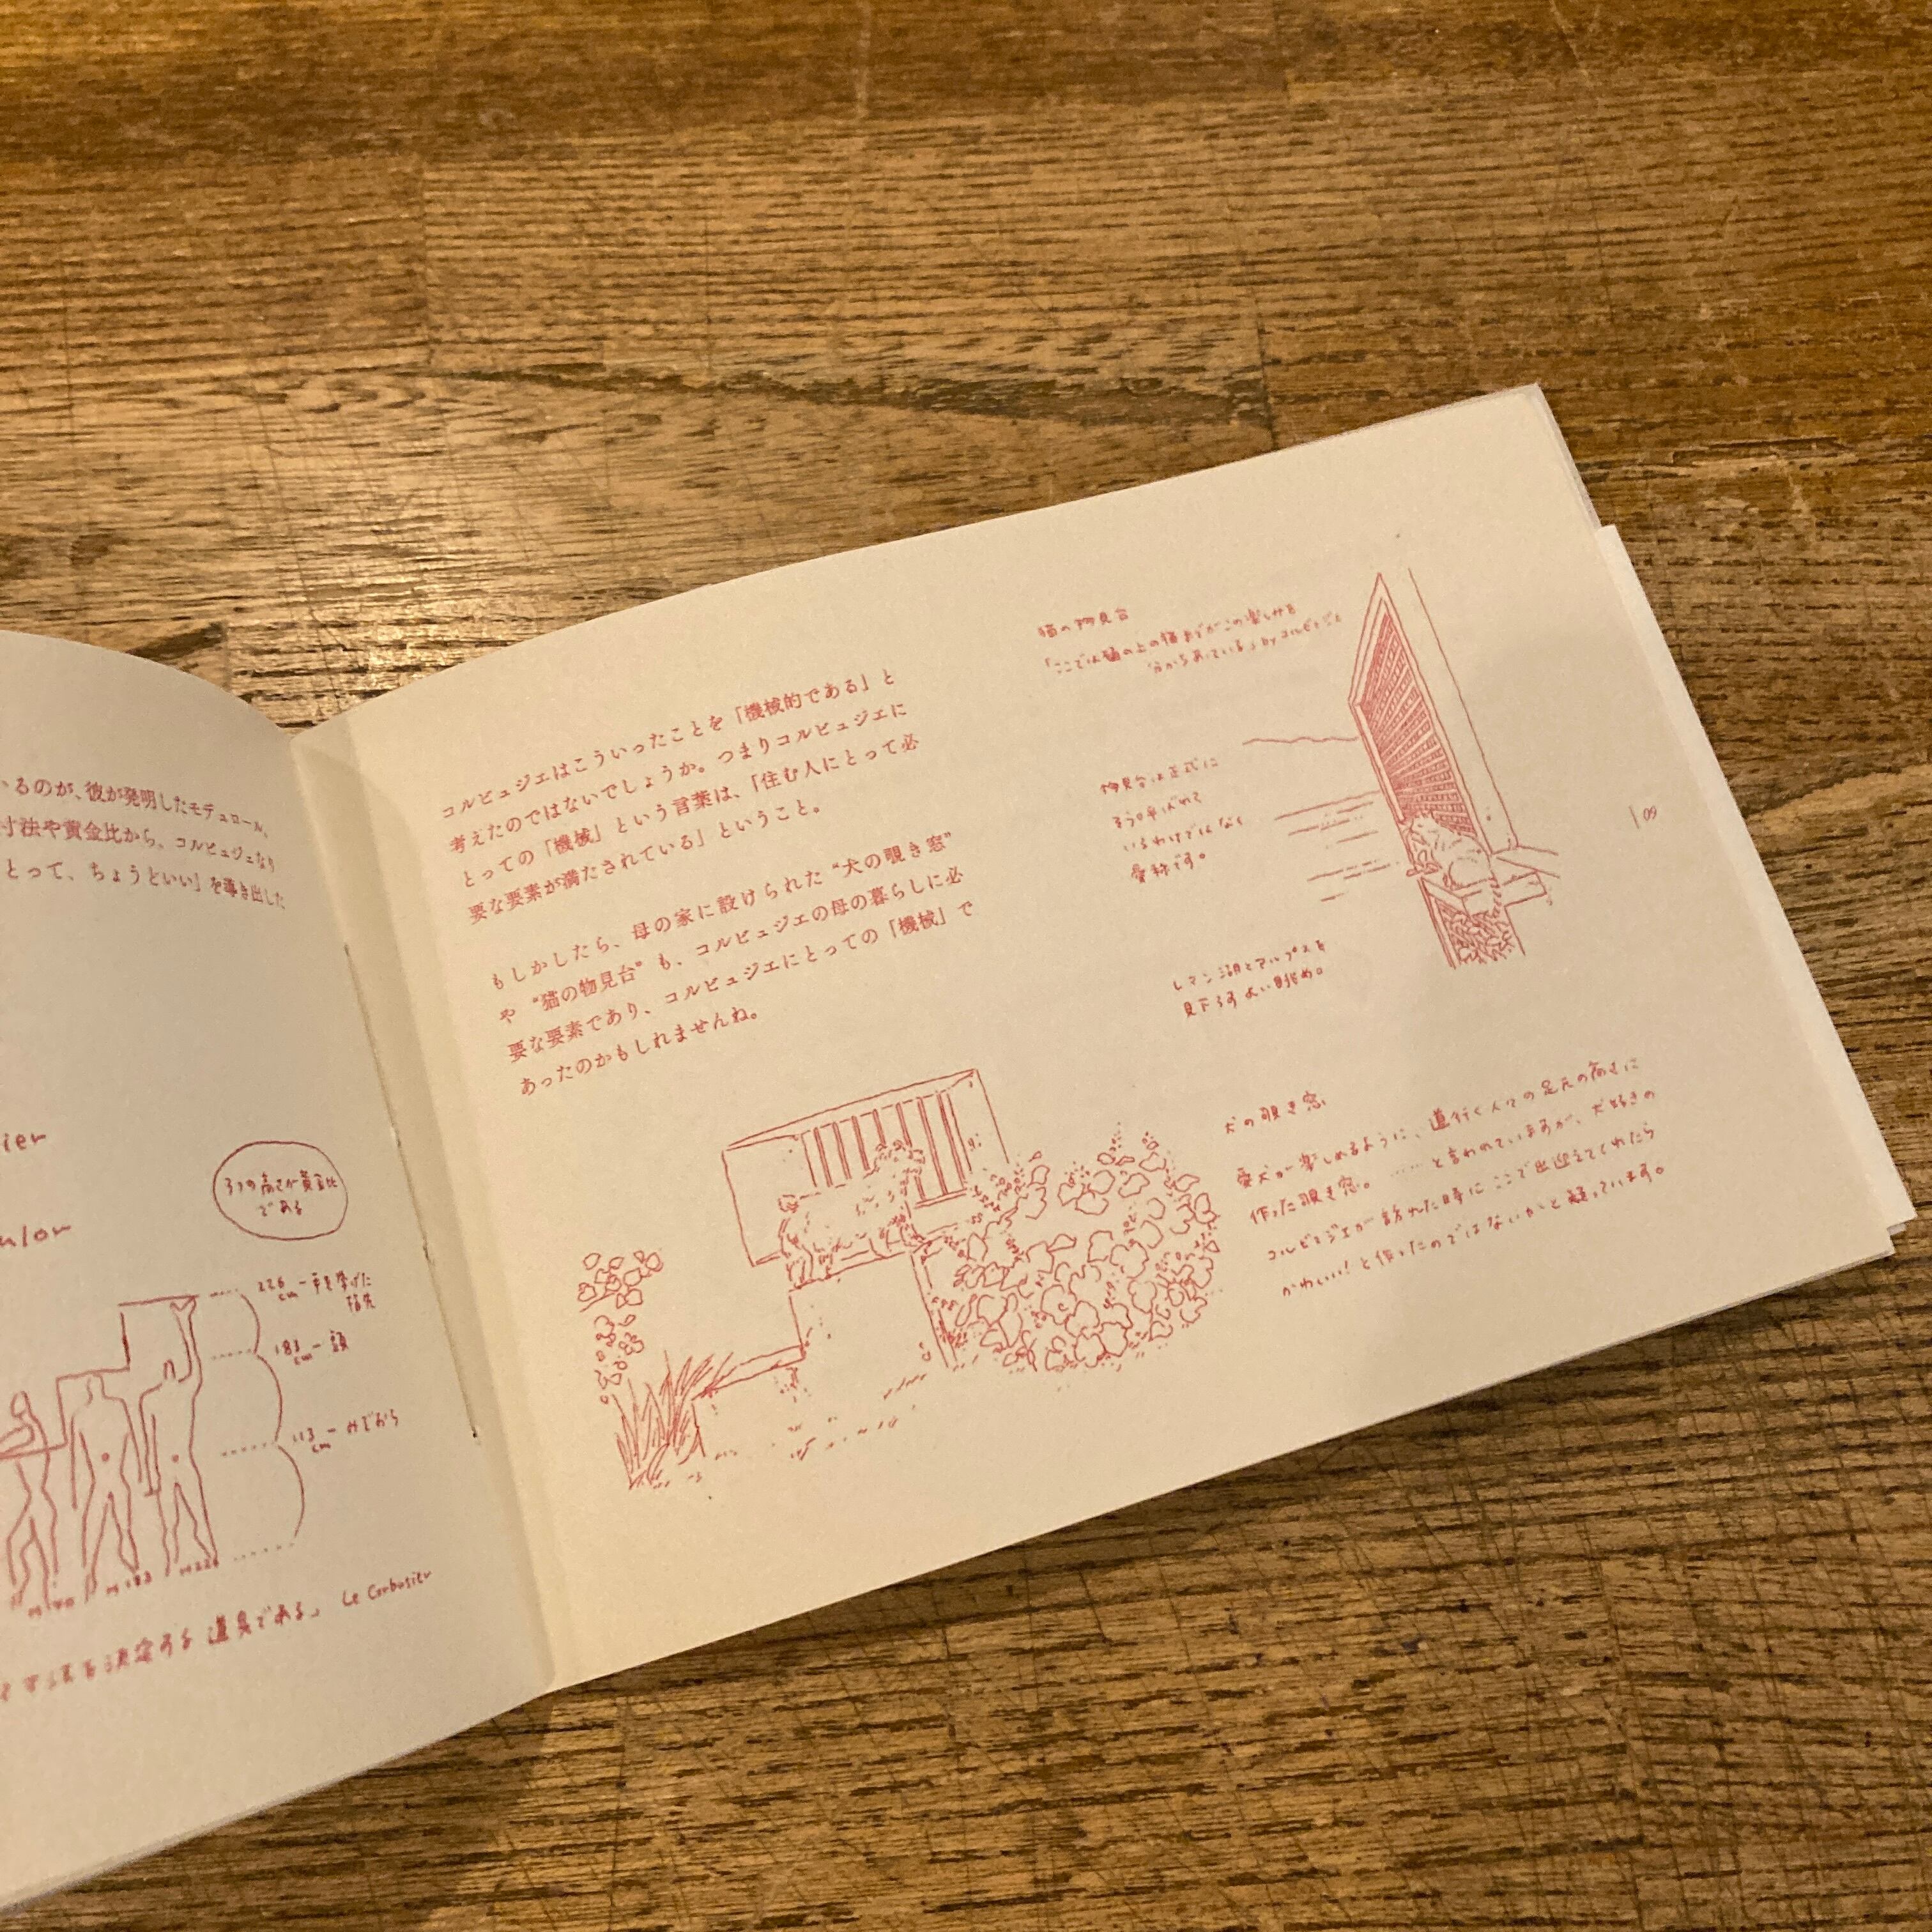 いるのが、彼が発明したモデュロール。
寸法や黄金比から、コルビュジェなり
とって、ちょうどいい」を導き出した
ier
ulor
3つの高さが黄金比
である
226cm ― 手を挙げた
指先
183cm ― 頭
113cm ― みぞおち
M183
M226
決定する道具である」 Le Corbusier
コルビュジエはこういったことを「機械的である」と
考えたのではないでしょうか。つまりコルビュジエに
とっての「機械」という言葉は、「住む人にとって必
要な要素が満たされている」ということ。
もしかしたら、母の家に設けられた“犬の覗き窓”
や“猫の物見台”も、コルビュジエの母の暮らしに必
要な要素であり、コルビュジエにとっての「機械」で
あったのかもしれませんね。
猫の物見台
「ここでは塀の上の猫までがこの楽しみを
分かちあっている」by コルビュジエ
物見台は正式に
そう呼ばれて
いるわけではなく
愛称です。
レマン湖とアルプスを
見下ろすよい眺め。
犬の覗き窓
愛犬が楽しめるように、道行く人々の足元の高さに
作った覗き窓。……と言われていますが、犬好きの
コルビュジエが訪れた時にここで出迎えてくれたら
かわいい!と作ったのではないかと疑っています。
09